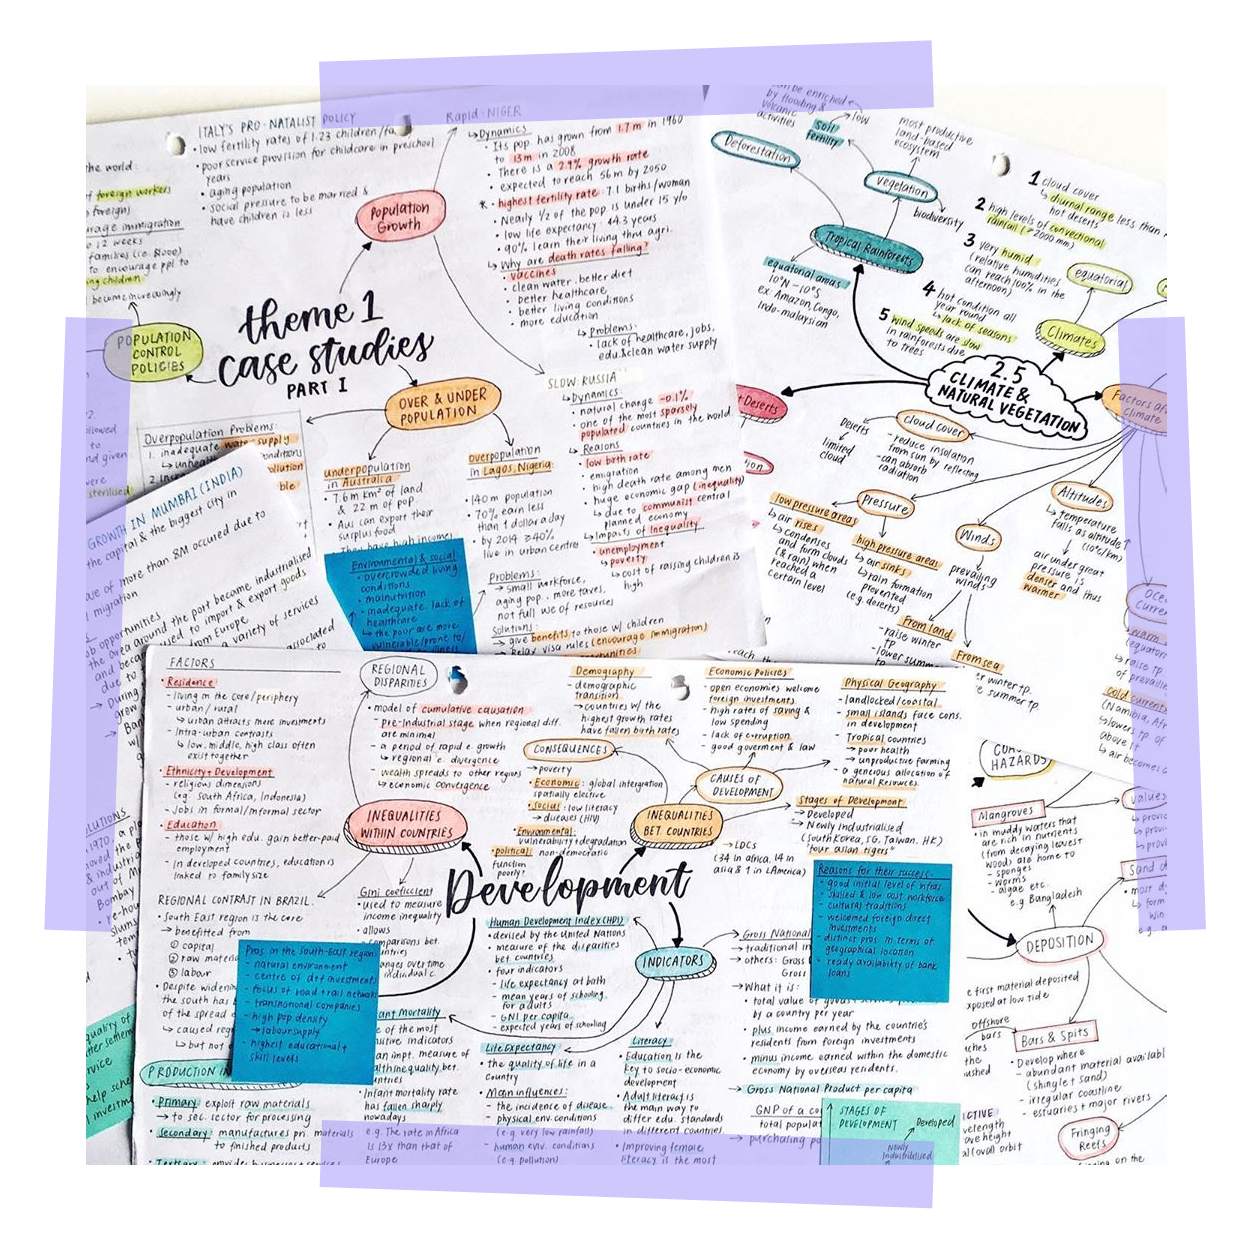 ITALY'S PRO-NATALIST POLICY
• low fertility rates of 1.23 children/fa
• poor service provision for childcare in preschool
years
• aging population
• social pressure to be married &
have children is less
the world:
f foreign workers
urage immigration
12 weeks
families (i.e. $1000)
to encourage ppl to
ng children
become increasingly
POPULATION
CONTROL
POLICIES
Population
Growth
theme 1
case studies
PART I
OVER & UNDER
POPULATION
Rapid-NIGER
↳ Dynamics
• Its pop has grown from 1.7 m in 1960
to 13m in 2008
• There is a 2.9% growth rate
• expected to reach 56 m by 2050
* • highest fertility rate : 7.1 births/woman
• Nearly 1/2 of the pop is under 15 y/o
• low life expectancy : 44.3 years
• 90% learn their living thru agri.
↳ Why are death rates falling?
• vaccines
• clean water : better diet
• better healthcare
• better living conditions
• more education
↳ Problems:
• lack of healthcare, jobs,
edu. & clean water supply
SLOW: RUSSIA
↳ Dynamics
• natural change -0.1%
• one of the most sparsely
populated countries in the world.
↳ Reasons
• low birth rate
• emigration
• high death rate among men
• huge economic gap (inequality)
↳ due to communist central
planned economy
↳ Impacts of Inequality
• unemployment
• poverty
↳ cost of raising children is
high
Problems:
→ small workforce,
aging pop., more taxes,
not full use of resources
Solutions:
→ give benefits to those w/ children
→ Relax visa rules (encourage immigration)
Overpopulation Problems:
1. inadequate water supply
underpopulation
in Australia
• 7.6m km² of land
& 22 m of pop.
• Aus can export their
surplus food
• They have high income
overpopulation
in Lagos, Nigeria
• 140 m population
• 70% earn less
than 1 dollar a day
• by 2014 ≥40%
live in urban centres
Environmental & social
• overcrowded living
conditions
• malnutrition
• inadequate. lack of
healthcare
↳ the poor are more
vulnerable/prone to
GROWTH IN MUMBAI (INDIA)
the capital & the biggest city in
of more than 8M occured due to
migration
opportunities
the area around the port became industrialised
used to import & export goods
from Europe
a variety of services
associated
can be enriched
by flooding &
volcanic
activities
soil
fertility
→ low
most productive
land-based
ecosystem
Deforestation
Vegetation
biodiversity
Tropical Rainforests
equatorial areas
10°N-10°S
ex Amazon, Congo,
Indo-malaysian
1 cloud cover
↳ diurnal range less than
hot deserts
2 high levels of convectional
rainfall (≥2000 mm)
3 very humid
(relative humidities
can reach 100% in the
afternoon)
4 hot condition all
year round
↳ lack of seasons
5 wind speeds are slow
in rainforests due
to trees
equatorial
Climates
2.5
CLIMATE &
NATURAL VEGETATION
t Deserts
Factors af
climate
Deserts
↓
limited
cloud
cloud cover
- reduce insolation
from sun by reflecting
- can absorb
radiation
Pressure
low pressure areas
↳ air rises
↳ condenses
and form clouds
(& rain) when
reached a
certain level
high pressure areas
↳ air sinks
↳ rain formation
prevented
(e.g. deserts)
Winds
prevailing
winds
From land
- raise winter
tp
- lower summ
From sea
winter tp.
e summer tp.
Altitudes
↳ temperature
falls as altitude ↑
(10°c/km)
air under great
pressure is
denser and thus
warmer
Oce
curre
warm
↳ raise tp.
of prevaili
cold current
(Namibia, Afr
↳ lowers tp of
above it
↳ air becomes
FACTORS
• Residence
- living in the core/periphery
- urban / rural
↳ urban attracts more investments
- Intra-urban contrasts
↳ low, middle, high class often
exist together
• Ethnicity + Development
- religious dimensions
(e.g. South Africa, Indonesia)
- Jobs in formal/informal sector
• Education
- those w/ high edu. gain better-paid
employment
- in developed countries, education is
linked to family size
REGIONAL CONTRAST IN BRAZIL.
• South East region is the core
→ benefitted from
① capital
② raw materi
③ labour
• Despite widenin
the south has
of the spread
↳ caused reg
↳ but not
Pros. in the South-East region:
- natural environment
- centre of d+f investments
- focus of road + rail network
- transnational companies
- high pop density
→ labour supply
- highest educational +
skill levels
PRODUCTION I
• Primary: exploit raw materials
→ to sec. sector for processing
• secondary: manufactures pri. materials
to finished products
REGIONAL
DISPARITIES
• model of cumulative causation
- pre-Industrial stage when regional diff.
are minimal
- a period of rapid e. growth
↳ regional e. divergence
- wealth spreads to other regions
↳ economic convergence
INEQUALITIES
WITHIN COUNTRIES
Gini coefficient
• used to measure
income inequality
• allows
comparisons bet.
ntries
anges over time
individual c.
Development
Demography
- demographic
transition
→ countries w/ the
highest growth rates
have fallen birth rates
CONSEQUENCES
→ poverty
• Economic : global integration
spatially elective
• Social : low literacy
→ diseases (HIV)
• Environmental:
vulnerability + degradation
• political: non-democratic
function
poorly?
INEQUALITIES
BET COUNTRIES
Economic Policies
- open economies welcome
foreign investments
- high rates of saving &
low spending
- lack of corruption
- good goverment & law
CAUSES OF
DEVELOPMENT
Physical Geography
- landlocked/coastal
- small islands face cons.
in development
- Tropical countries
→ poor health
→ unproductive farming
- a generous allocation of
natural Resources.
Stages of Development
→ Developed
→ Newly Industrialised
(South Korea, SG, Taiwan, HK)
"four asian tigers"
→ LDCs
(34 in africa, 14 in
asia & 1 in LAmerica)
Reasons for their success:
- good initial level of infras
- skilled & low cost workforce
- cultural traditions
- welcomed foreign direct
investments
- distinct pros. in terms of
geographical location
- ready availability of bank
loans
Human Development Index (HDI)
• derived by the United Nations
• measure of the disparities
bet countries
• four indicators
- life expectancy at birth
- mean years of schooling
for adults
- GNI per capita
- expected years of schooling
INDICATORS
→ Gross National
→ traditional in
→ others: Gross
Gross
→ What it is:
• total value of goods
by a country per year
• plus income earned by the country's
residents from foreign investments
• minus income earned within the domestic
economy by overseas residents.
→ Gross National Product per capita
GNP of a co
total populat
→ purchasing po
STAGES OF
DEVELOPMENT
Developed
Newly
Industrialised
ant Mortality
e of the most
sitive indicators
an impt. measure of
alth inequality bet.
untries
• Infant mortality rate
has fallen sharply
nowadays
e.g. The rate in Africa
is 13x than that of
Europe
Life Expectancy
• the quality of life in a
country
• Main influences:
- the incidence of disease
- physical env. conditions
(e.g. very low rainfall)
- human env. conditions
(e.g. pollution)
Literacy
• Education is the
key to socio-economic
development
• Adult literacy is
the main way to
differ edu. standards
in different countries
• Improving female
literacy is the most
HAZARDS
Mangroves
• in muddy waters that
are rich in nutrients
(from decaying leavest
wood) are home to
- sponges
- worms
- algae etc.
e.g Bangladesh
values
Sand d
DEPOSITION
e first material deposited
xposed at low tide
offshore
bars
Bars & Spits
• Develop where
- abundant material availabl
(shingle + sand)
- irregular coastline
- estuaries + major rivers
Fringing
Reefs